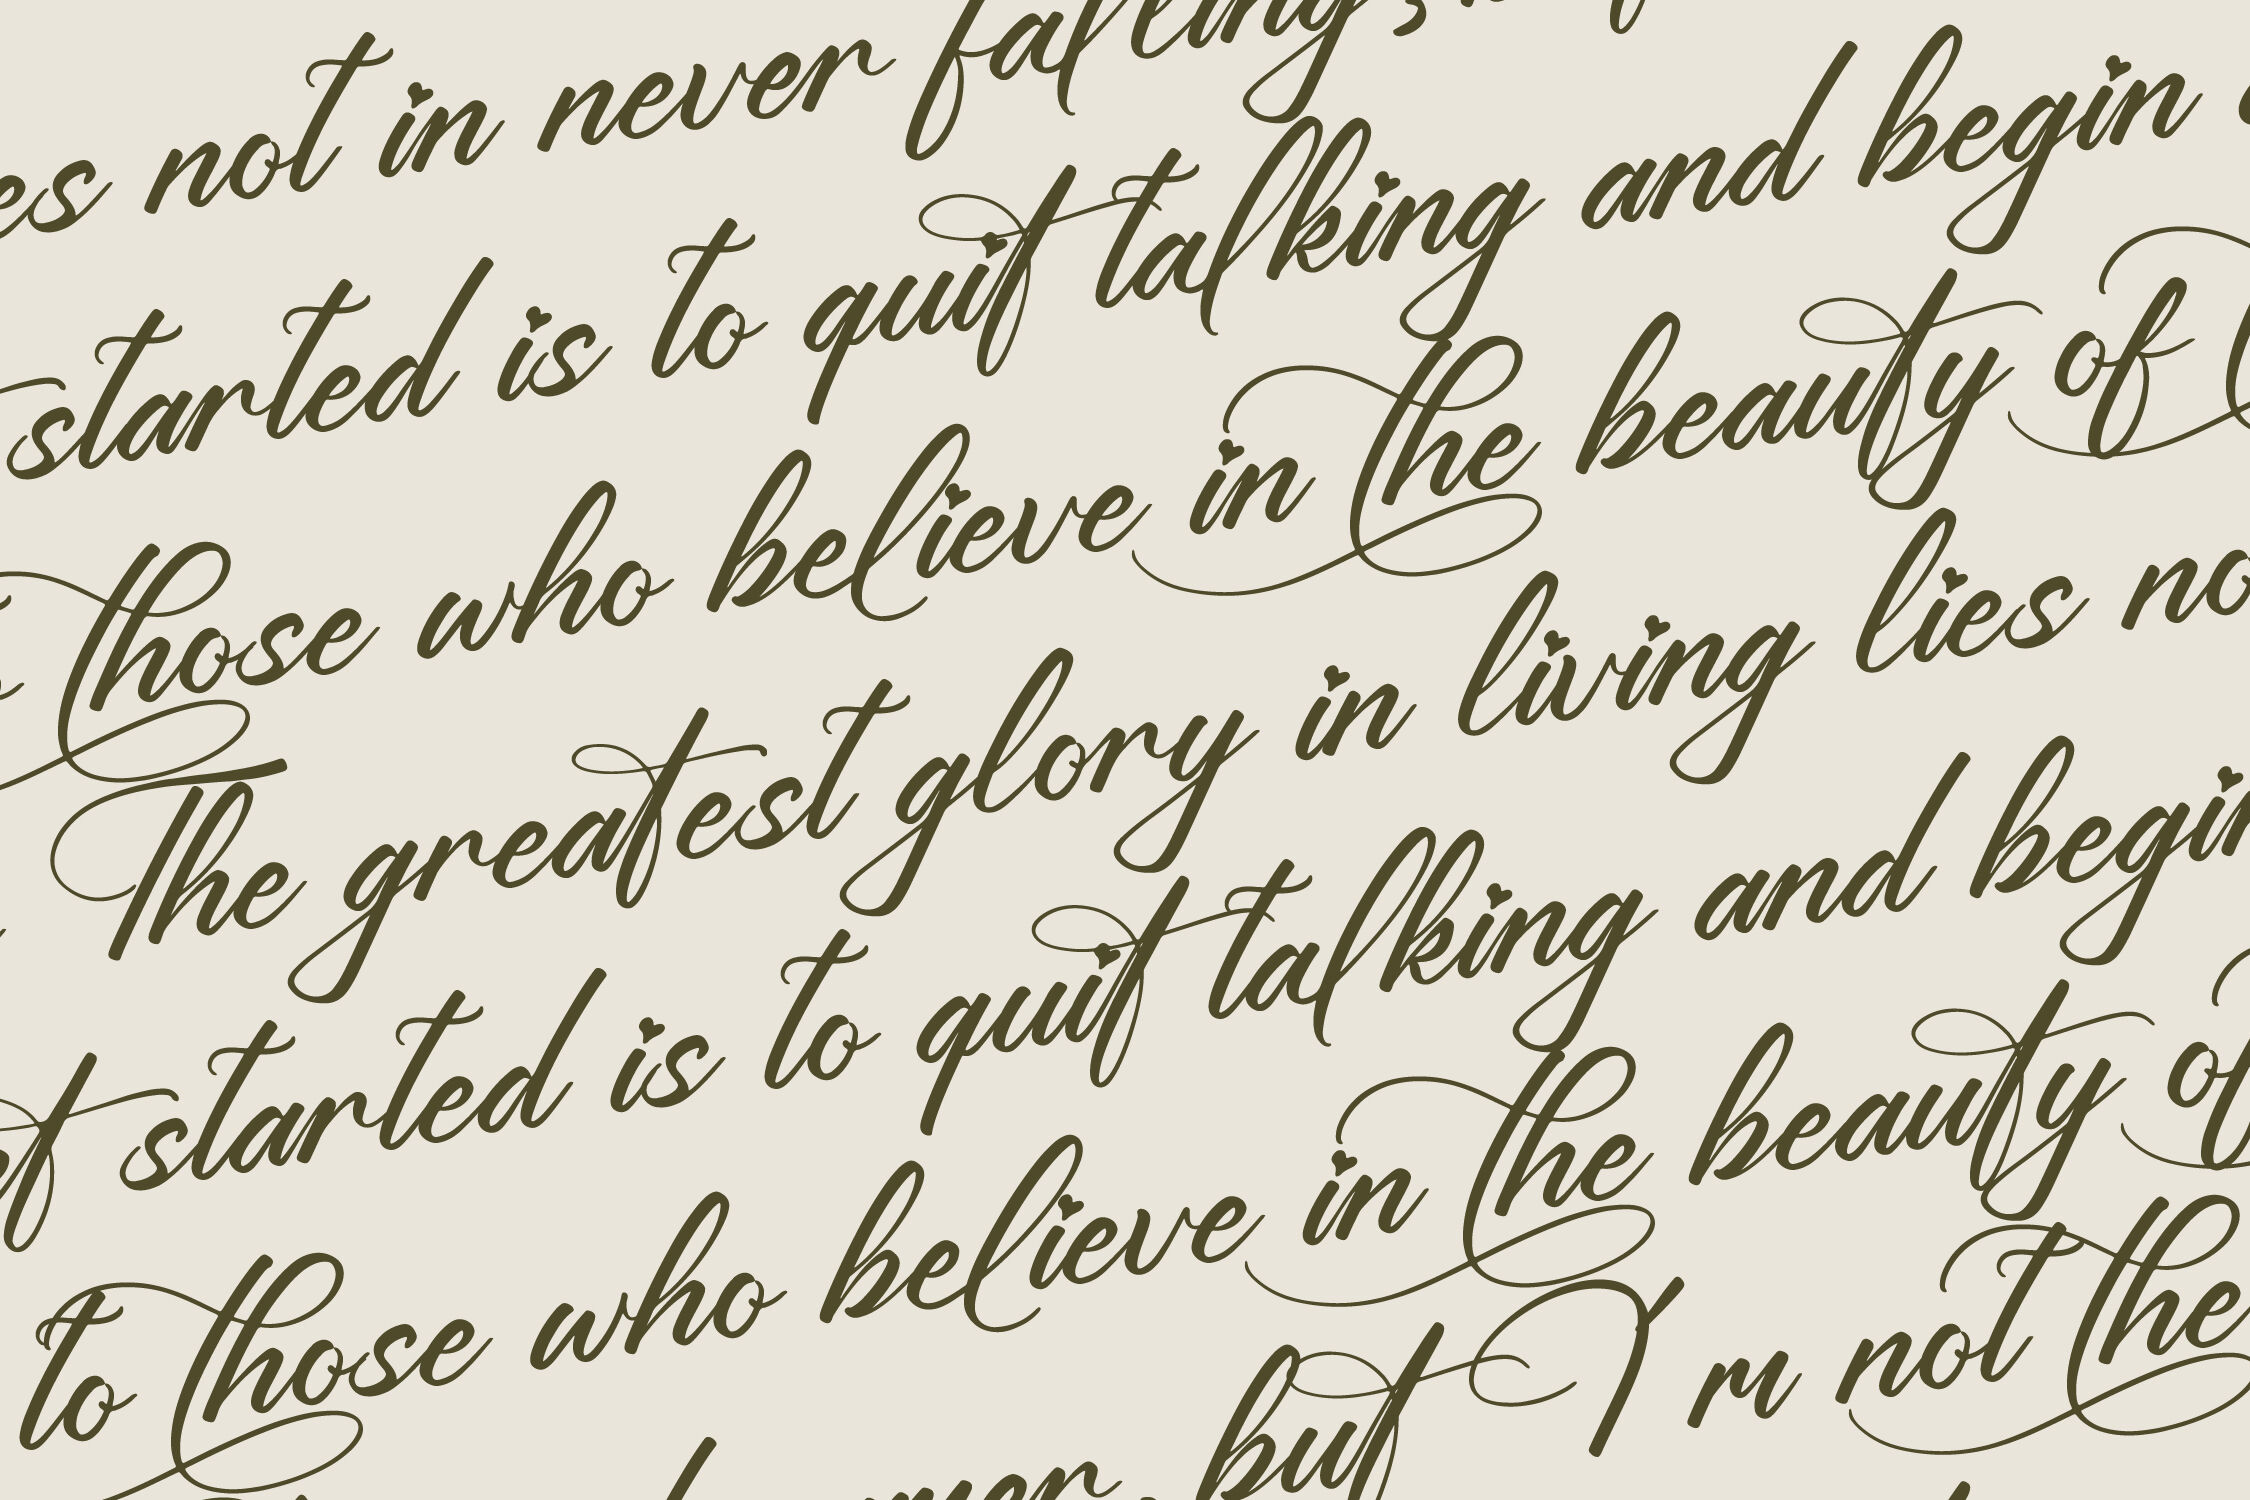 es not in never falling,
started is to quit talking and begin
those who believe in the beauty of
The greatest glory in living lies no
started is to quit talking and begin
to those who believe in the beauty of
but I'm not the